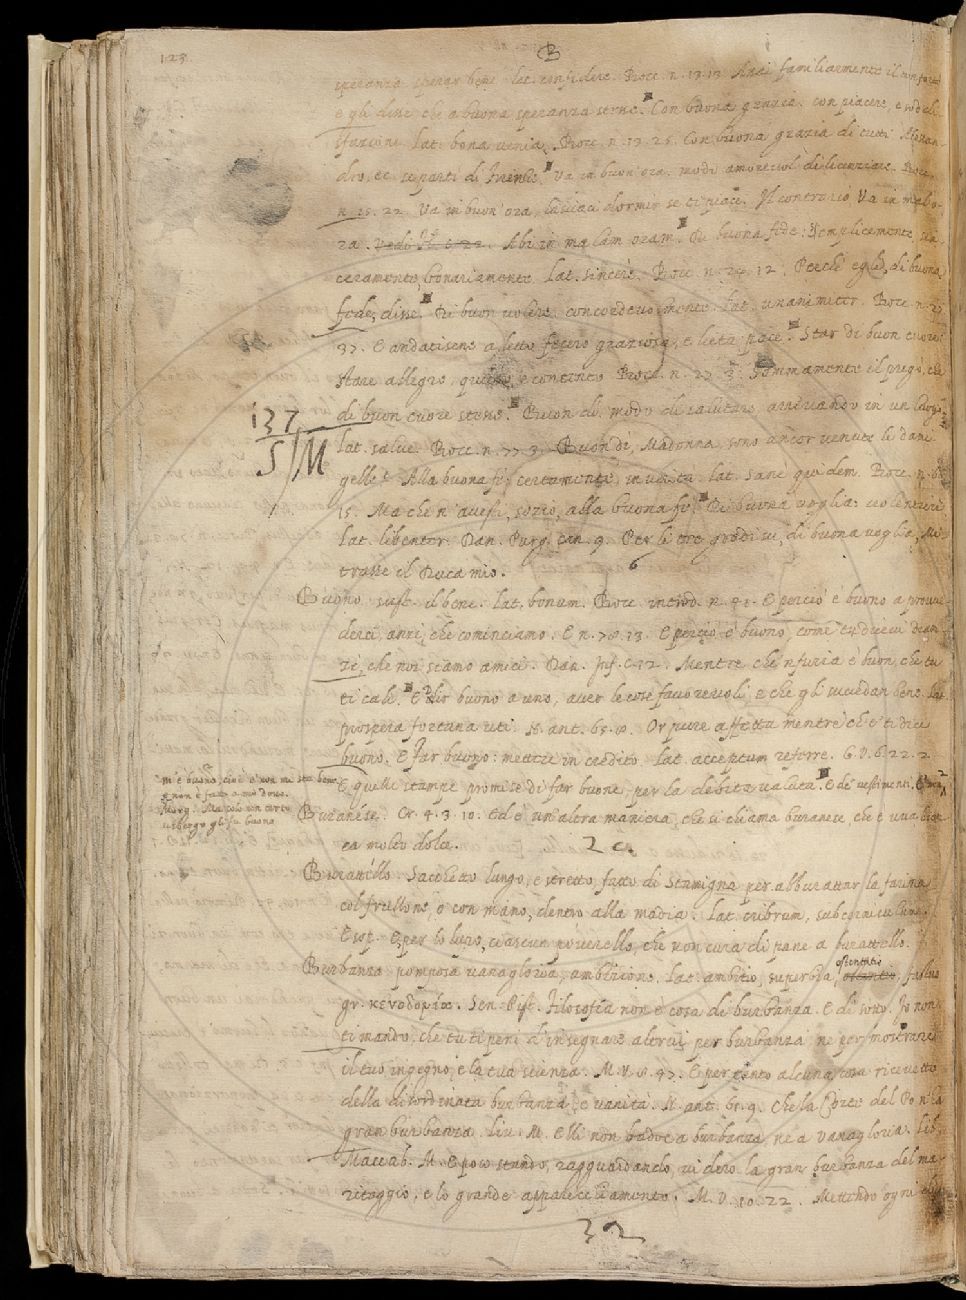 123
B
speranza sperar bene lat. confidere. Bocc. n. 13. 13. Assai familiarmente il confortò
e gli disse che a buona speranza stesse. Con buona grazia. con piacere, e sodis-
fazione Lat. bona venia. Bocc. n. 17. 25. Con buona grazia di tutti
dro, se partì di Firenze. Va in buon'ora. modo amorevol di licenziare. Bocc.
n. 15. 22. Va in buon'ora, lasciaci dormir se ti piace. Il contrario Va in malo-
ra. Abi in malam oram. Di buona fede: Semplicemente, sin-
ceramente, bonariamente. Lat. sincere. Bocc. n. 24. 12. Perchè egli, di buona
fede, disse. Di buon volere. concordevolmente. lat. unanimiter. Bocc. n. 27
37. E andatisene a letto fecero graziosa, e lieta pace. Star di buon cuore
stare allegro, quieto, e contento Bocc. n. 27. Sommamente il pregò, che
di buon cuore stesse. Buon dì. modo di salutare, arrivando in un luogo
137
S/M
lat. salve. Bocc. n. 77. 3. Buon dì, Madonna sono ancor venute le dami-
gelle? Alla buona fè: certamente, in verità lat. sane quidem. Bocc. n.
15. Ma che n'avesti, sozio, alla buona fè? Di buona voglia: volentieri
Lat. libenter. Dan. Purg. can. 9. Per li tre gradi su, di buona voglia, Mi
trasse il Duca mio.
6
Buono sust. il bene. Lat. bonum. Bocc. introd. n. 41. E perciò è buono a provve-
derci anzi, che cominciamo. E n. 78. 13. E perciò è buono, come tu dicevi dianzi
zi, che noi siamo amici. Dan. Inf. c. 12. Mentre che n furia è buon, che tu
ti cali. E Dir buono a uno, aver le cose favorevoli e che gli succedan bene. Lat.
prospera fortuna uti. N. ant. 65. Or pure affretta mentre ch'e' ti dice
buono. E Far buono: mettere in credito. Lat. acceptum referre. G. V. 6. 22. 2.
m'è buono, cioè e' non mi sta bene
e non è fatto a mio dosso.
Morg. Ma solo un certo
usbergo gli fu buono
E quelle stampe promise di far buone, per la debita valuta. E de' vestimenti. E
Buranese. Cr. 4. 3. 10. Ed è un'altra maniera, che si chiama buranese, che è uva bian-
ca molto dolce.
2
Burattello Sacchetto lungo, e stretto, fatto di Stamigna per abburattar la farina
col frullone, o con mano, dentro alla madia. Lat. cribrum, subcerniculum
Esop. E, per lo luzo, ciascun poverello, che non cura di pane a burattello.
Burbanza pomposa vanagloria, ambizione. Lat. ambitio, superbia, ostentatio, fastus
gr. κενοδοξία. Sen. Pist. Filosofia non è cosa di burbanza. E di sotto. Io non
ti mando, che tu ti peni d'insegnare altrui per burbanza, ne per mostrare
il tuo ingegno, e la tua scienza. M. V. 8. 47. E per tanto alcuna, cosa ricevette
della disordinata burbanza, e vanità. N. ant. 61. 9. Che la Corte del Po n'ha
gran burbanza. Liv. M. Elli non badoe a burbanza, ne a vanagloria. Lib.
Maccab. M. E poco stando, ragguardando, videro la gran burbanza del ma-
ritaggio, e lo grande apparecchiamento. M. V. 10. 22. Mettendo ogni
32